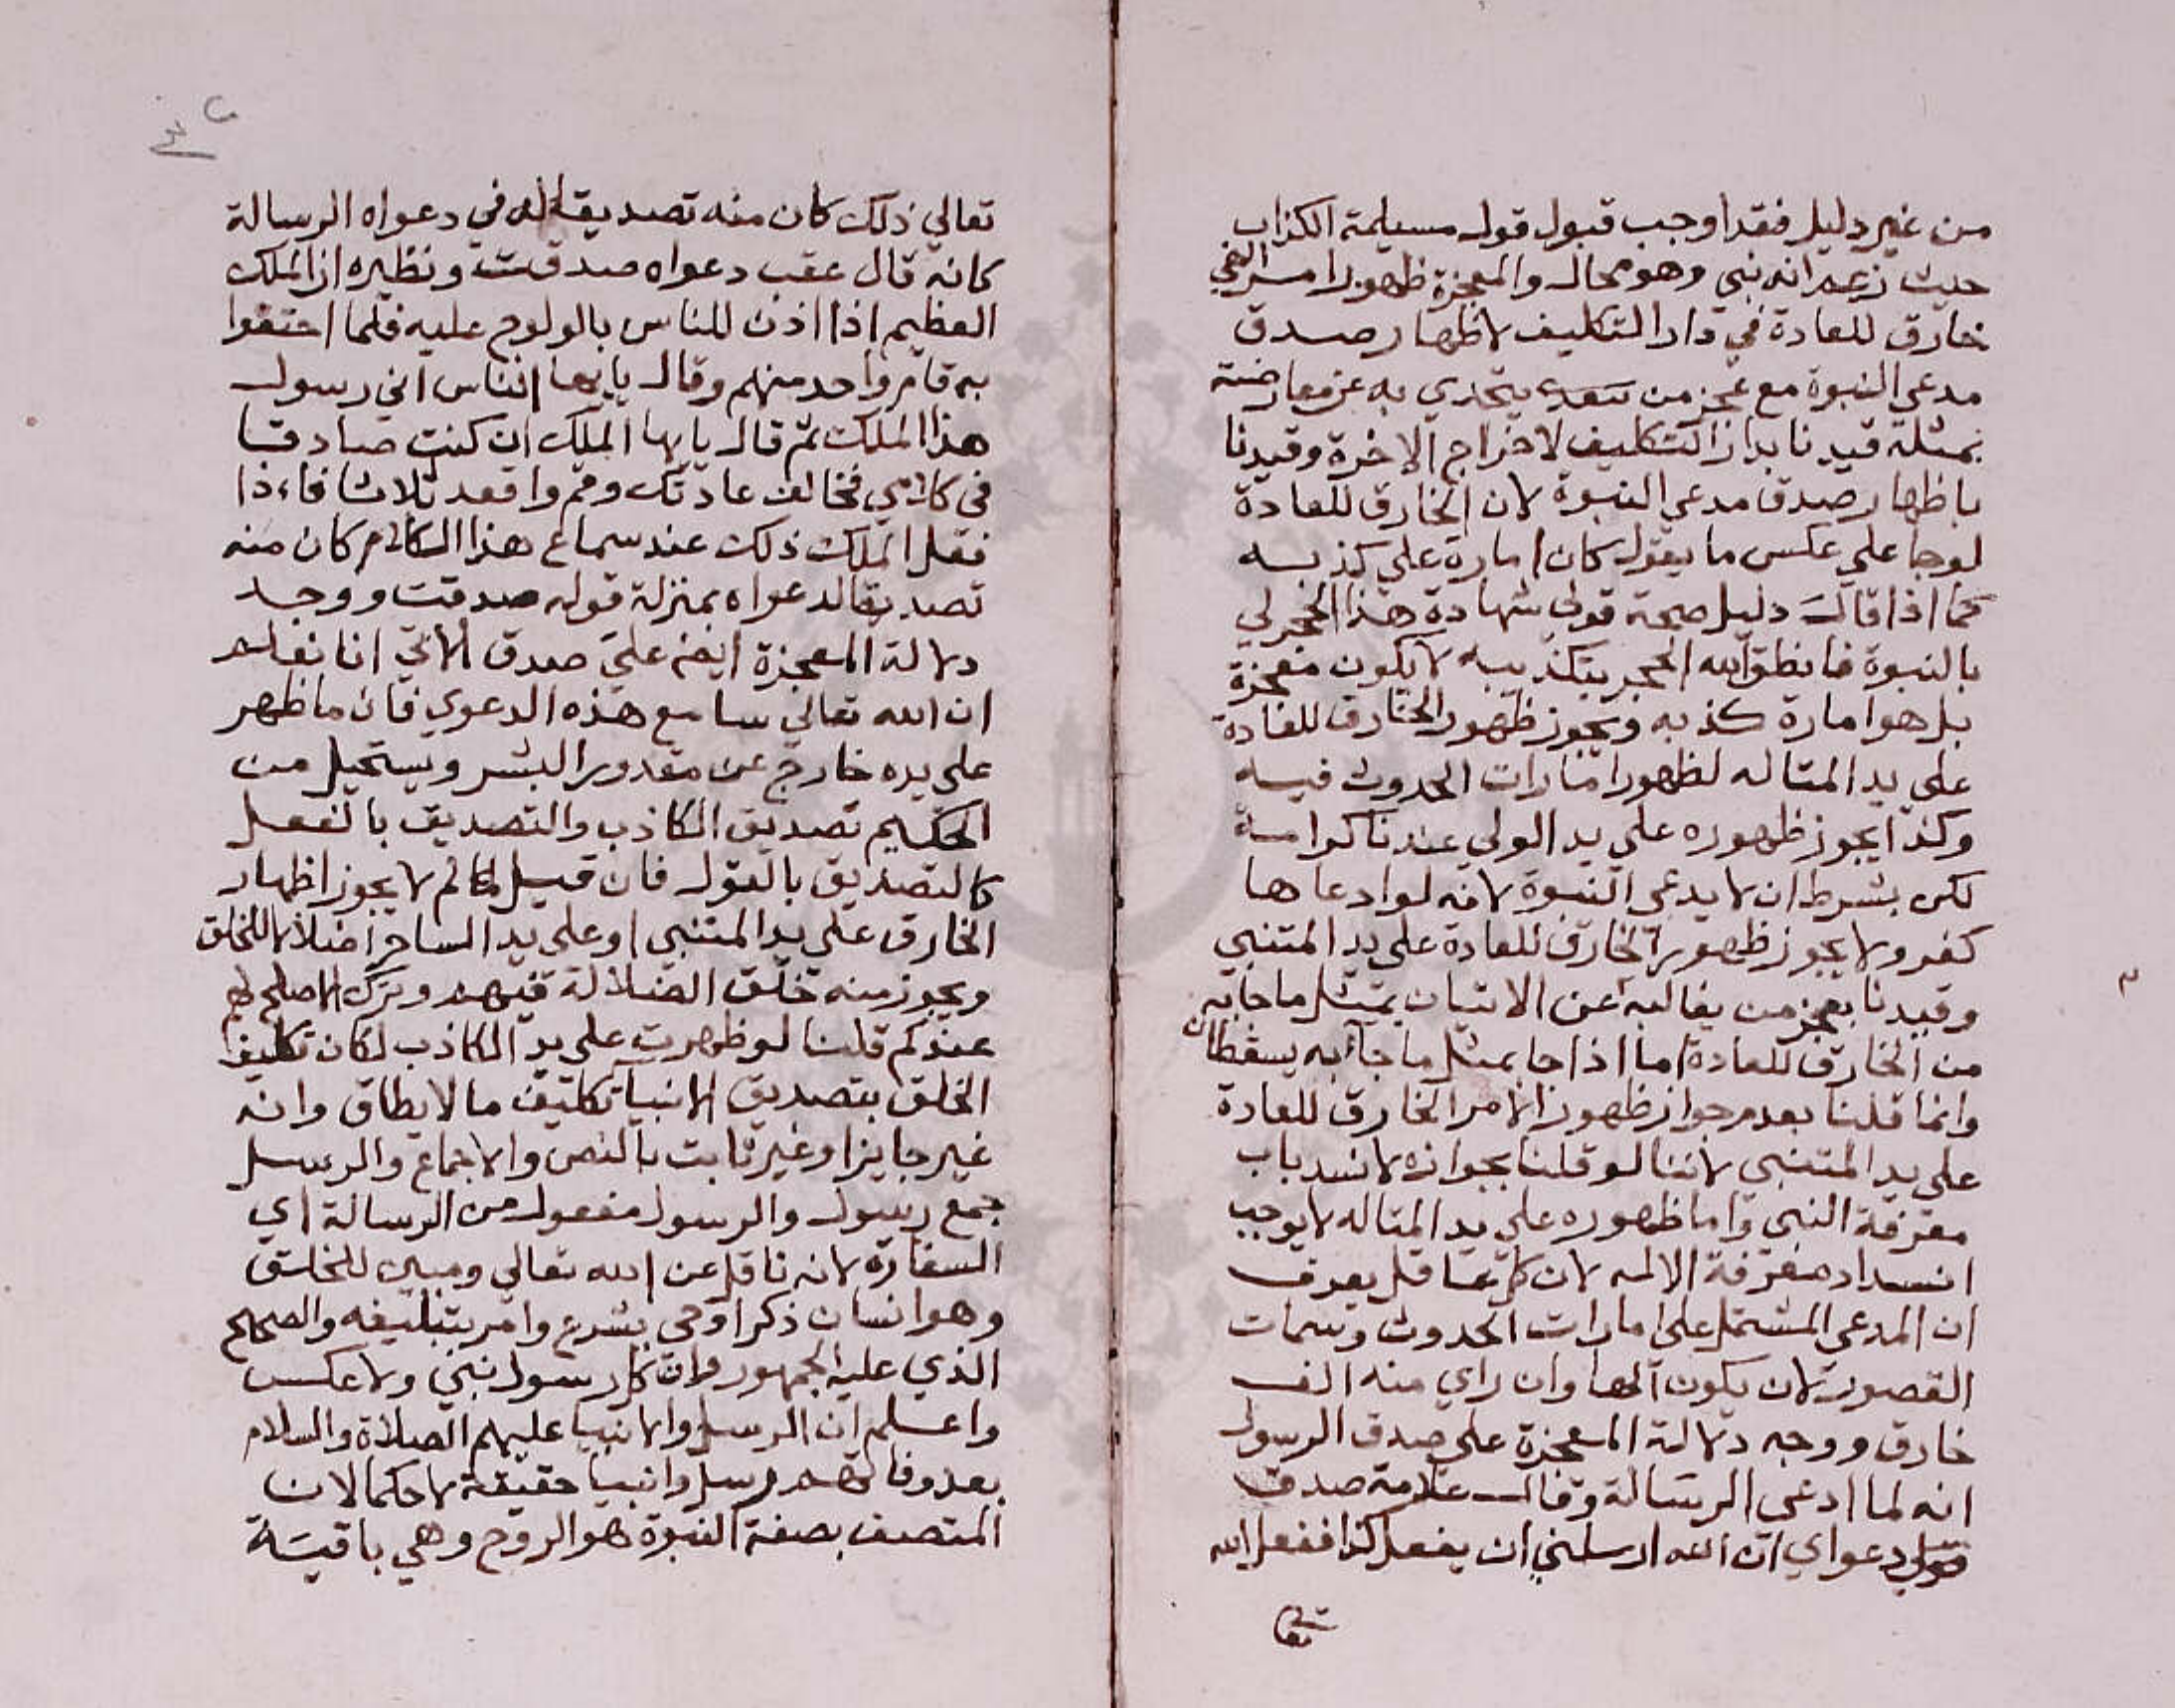 من غير دليل فقد اوجب قبول قول مسيلمة الكذاب
حيث زعم انه نبي وهو محال والمعجزة ظهور امر الهي
خارق للعادة في دار التكليف لاظهار صدق
مدعي النبوة مع عجز من يتحدي به عن معارضته
بمثله قيدنا بدار التكليف لاخراج الاخرة وقيدنا
باظهار صدق مدعي النبوة لان الخارق للعادة
لو جا علي عكس ما يقول كان امارة علي كذبه
كما اذا قال دليل صحة قولي شهادة هذا الحجر لي
بالنبوة فانطق الله الحجر بتكذيبه لا يكون معجزة
بل هو امارة كذبه ويجوز ظهور الخارق للعادة
علي يد المتاله لظهور امارات الحدوث فيه
وكذا يجوز ظهوره علي يد الولي عندنا كرامة
لكن بشرط ان لا يدعي النبوة لانه لو ادعاها
كفر ولا يجوز ظهور الخارق للعادة علي يد المتنبي
وقيدنا بعجز من يغالبه عن الاتيان بمثل ما جا به
من الخارق للعادة اما اذا جا بمثل ما جا به يسقطان
وانما قلنا بعدم جواز ظهور الامر الخارق للعادة
علي يد المتنبي لاننا لو قلنا بجوازه لانسد باب
معرفة النبي واما ظهوره علي يد المتاله لا يوجب
انسداد معرفة الاله لان كل عاقل يعرف
ان المدعي المشتمل علي امارات الحدوث وسمات
القصور لان يكون الها وان راي منه الف
خارق ووجه دلالة المعجزة علي صدق الرسول
انه لما ادعي الرسالة وقال علامة صدق
دعواي ان الله ارسلني ان يفعل كذا ففعل الله
تعا
تعالي ذلك كان منه تصديقا له في دعواه الرسالة
كانه قال عقب دعواه صدقت ونظيره ان الملك
العظيم اذا اذن للناس بالولوج عليه فلما احتفوا
به قام واحد منهم وقال يا ايها الناس اني رسول
هذا الملك ثم قال يا ايها الملك ان كنت صادقا
في كلامي فخالف عادتك وقم واقعد ثلاثا فاذا
فعل الملك ذلك عند سماع هذا الكلام كان منه
تصديقا لدعواه بمنزلة قوله صدقت ووجه
دلالة المعجزة ايضا علي صدق الاتي انا نعلم
ان الله تعالي سامع هذه الدعوي فان ما ظهر
علي يده خارج عن مقدور البشر ويستحيل من
الحكيم تصديق الكاذب والتصديق بالفعل
كالتصديق بالقول فان قيل لم لا يجوز اظهار
الخارق علي يد المتنبي او علي يد الساحر اضلالا للخلق
ويجوز منه خلق الضلالة فيهم وترك الاصلح لهم
عندكم قلنا لو ظهرت علي يد الكاذب لكان تكليف
الخلق بتصديق الانبيا تكليف ما لا يطاق وانه
غير جايز او غير ثابت بالنص والاجماع والرسل
جمع رسول والرسول مفعول من الرسالة اي
السفارة لانه ناقل عن الله تعالي ومبين للخلق
وهو انسان ذكر اوحي بشرع وامر بتبليغه والصحيح
الذي عليه الجمهور ان كل رسول نبي ولا عكس
واعلم ان الرسل والانبيا عليهم الصلاة والسلام
بعد وفاتهم رسل وانبيا حقيقة لا حكما لان
المتصف بصفة النبوة هو الروح وهي باقية